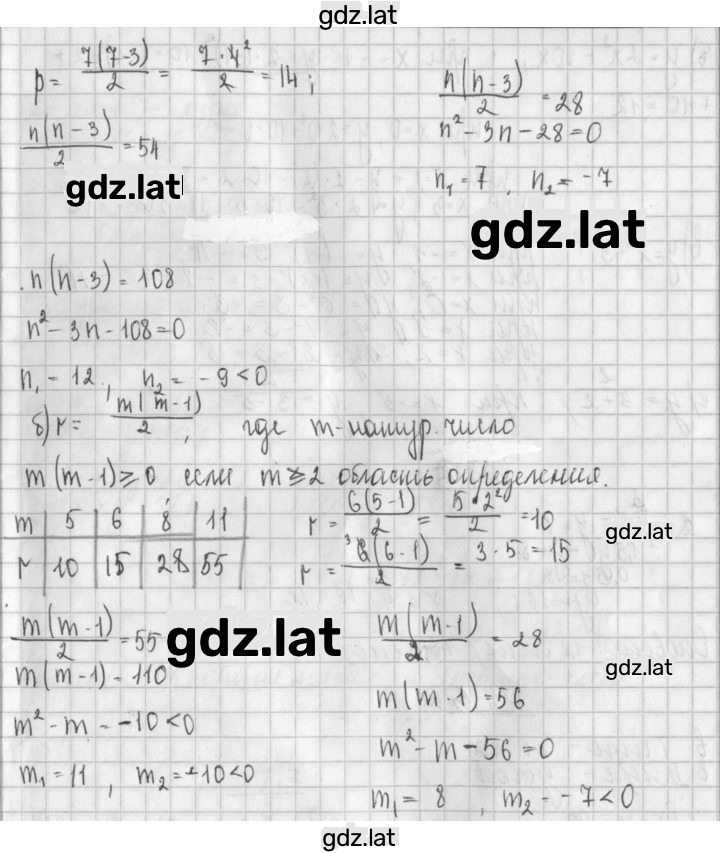 gdz.lat
p = 7(7-3)/2 = 7·4²/2 = 14;
n(n-3)/2 = 54
gdz.lat
n(n-3)/2 = 28
n² - 3n - 28 = 0
n₁ = 7, n₂ = -7
gdz.lat
n(n-3) = 108
n² - 3n - 108 = 0
n₁ - 12, n₂ = -9 < 0
б) r = m(m-1)/2, где m-натур. число
m(m-1) ≥ 0 если m ≥ 2 область определения.
m | 5 | 6 | 8 | 11
r | 10 | 15 | 28 | 55
r = 6(5-1)/2 = 5·2²/2 = 10
gdz.lat
r = ³6(6-1)/2 = 3·5 = 15
m(m-1)/2 = 55
gdz.lat
m(m-1) - 110
m² - m - -10 < 0
m₁ = 11, m₂ = -10 < 0
m(m-1)/2 = 28
gdz.lat
m(m-1) = 56
m² - m - 56 = 0
m₁ = 8, m₂ - -7 < 0
gdz.lat